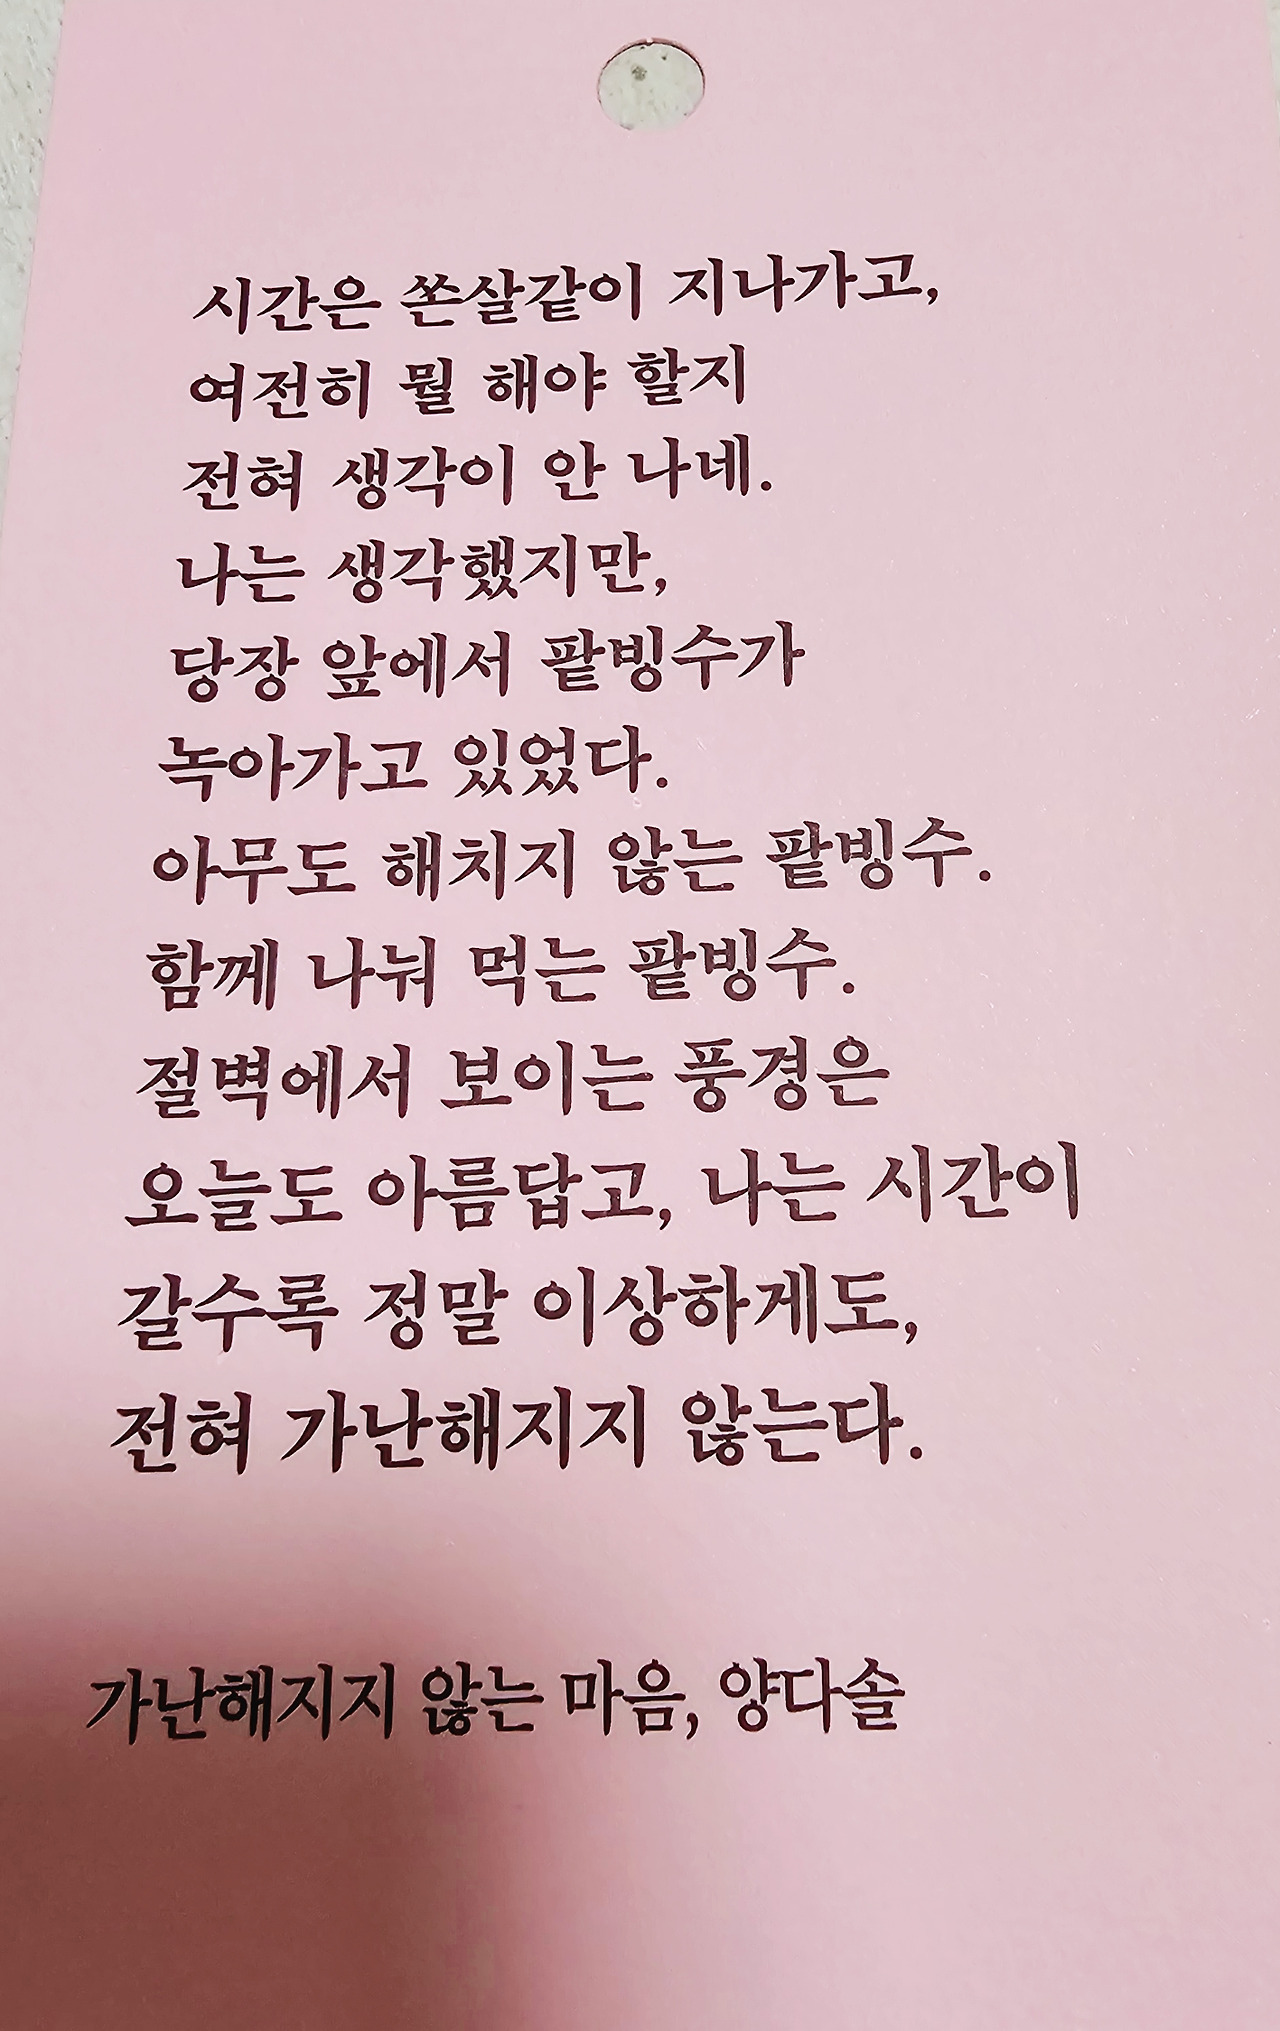 시간은 쏜살같이 지나가고,
여전히 뭘 해야 할지
전혀 생각이 안 나네.
나는 생각했지만,
당장 앞에서 팥빙수가
녹아가고 있었다.
아무도 해치지 않는 팥빙수.
함께 나눠 먹는 팥빙수.
절벽에서 보이는 풍경은
오늘도 아름답고, 나는 시간이
갈수록 정말 이상하게도,
전혀 가난해지지 않는다.
가난해지지 않는 마음, 양다솔